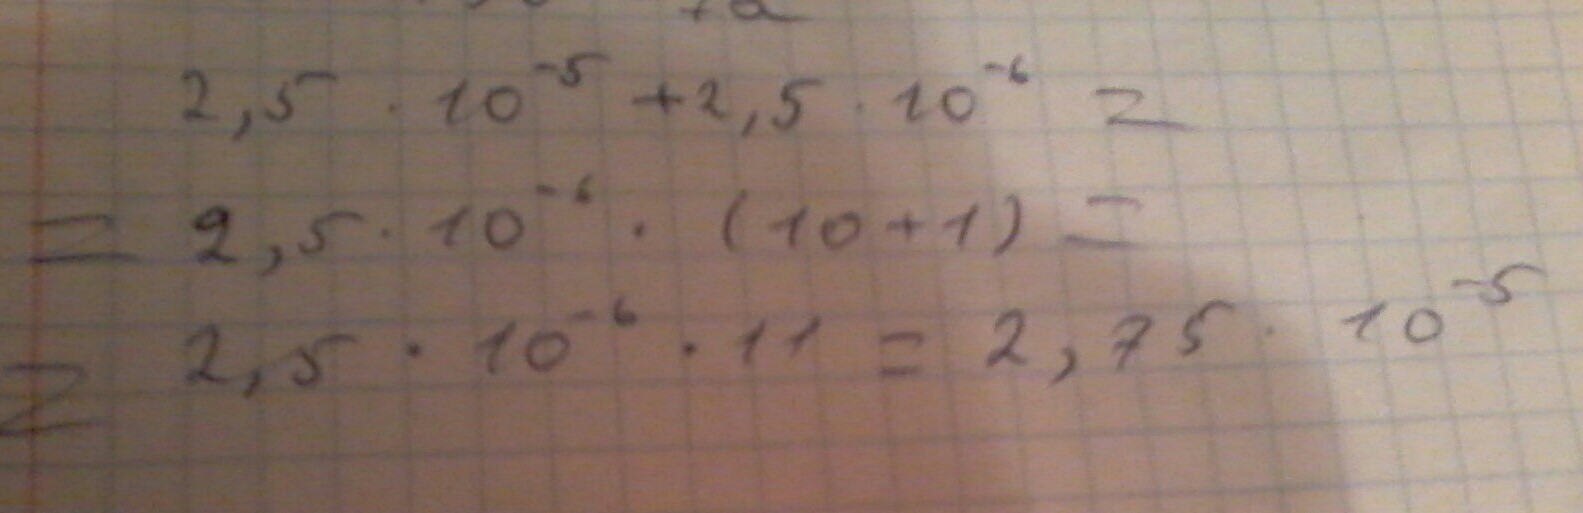 2,5 · 10⁻⁵ + 2,5 · 10⁻⁶ =
= 2,5 · 10⁻⁶ · (10 + 1) =
= 2,5 · 10⁻⁶ · 11 = 2,75 · 10⁻⁵